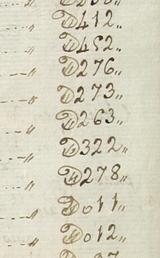 D412„
D452„
D276„
D273„
D263„
D322„
D278„
Do11„
Do12„